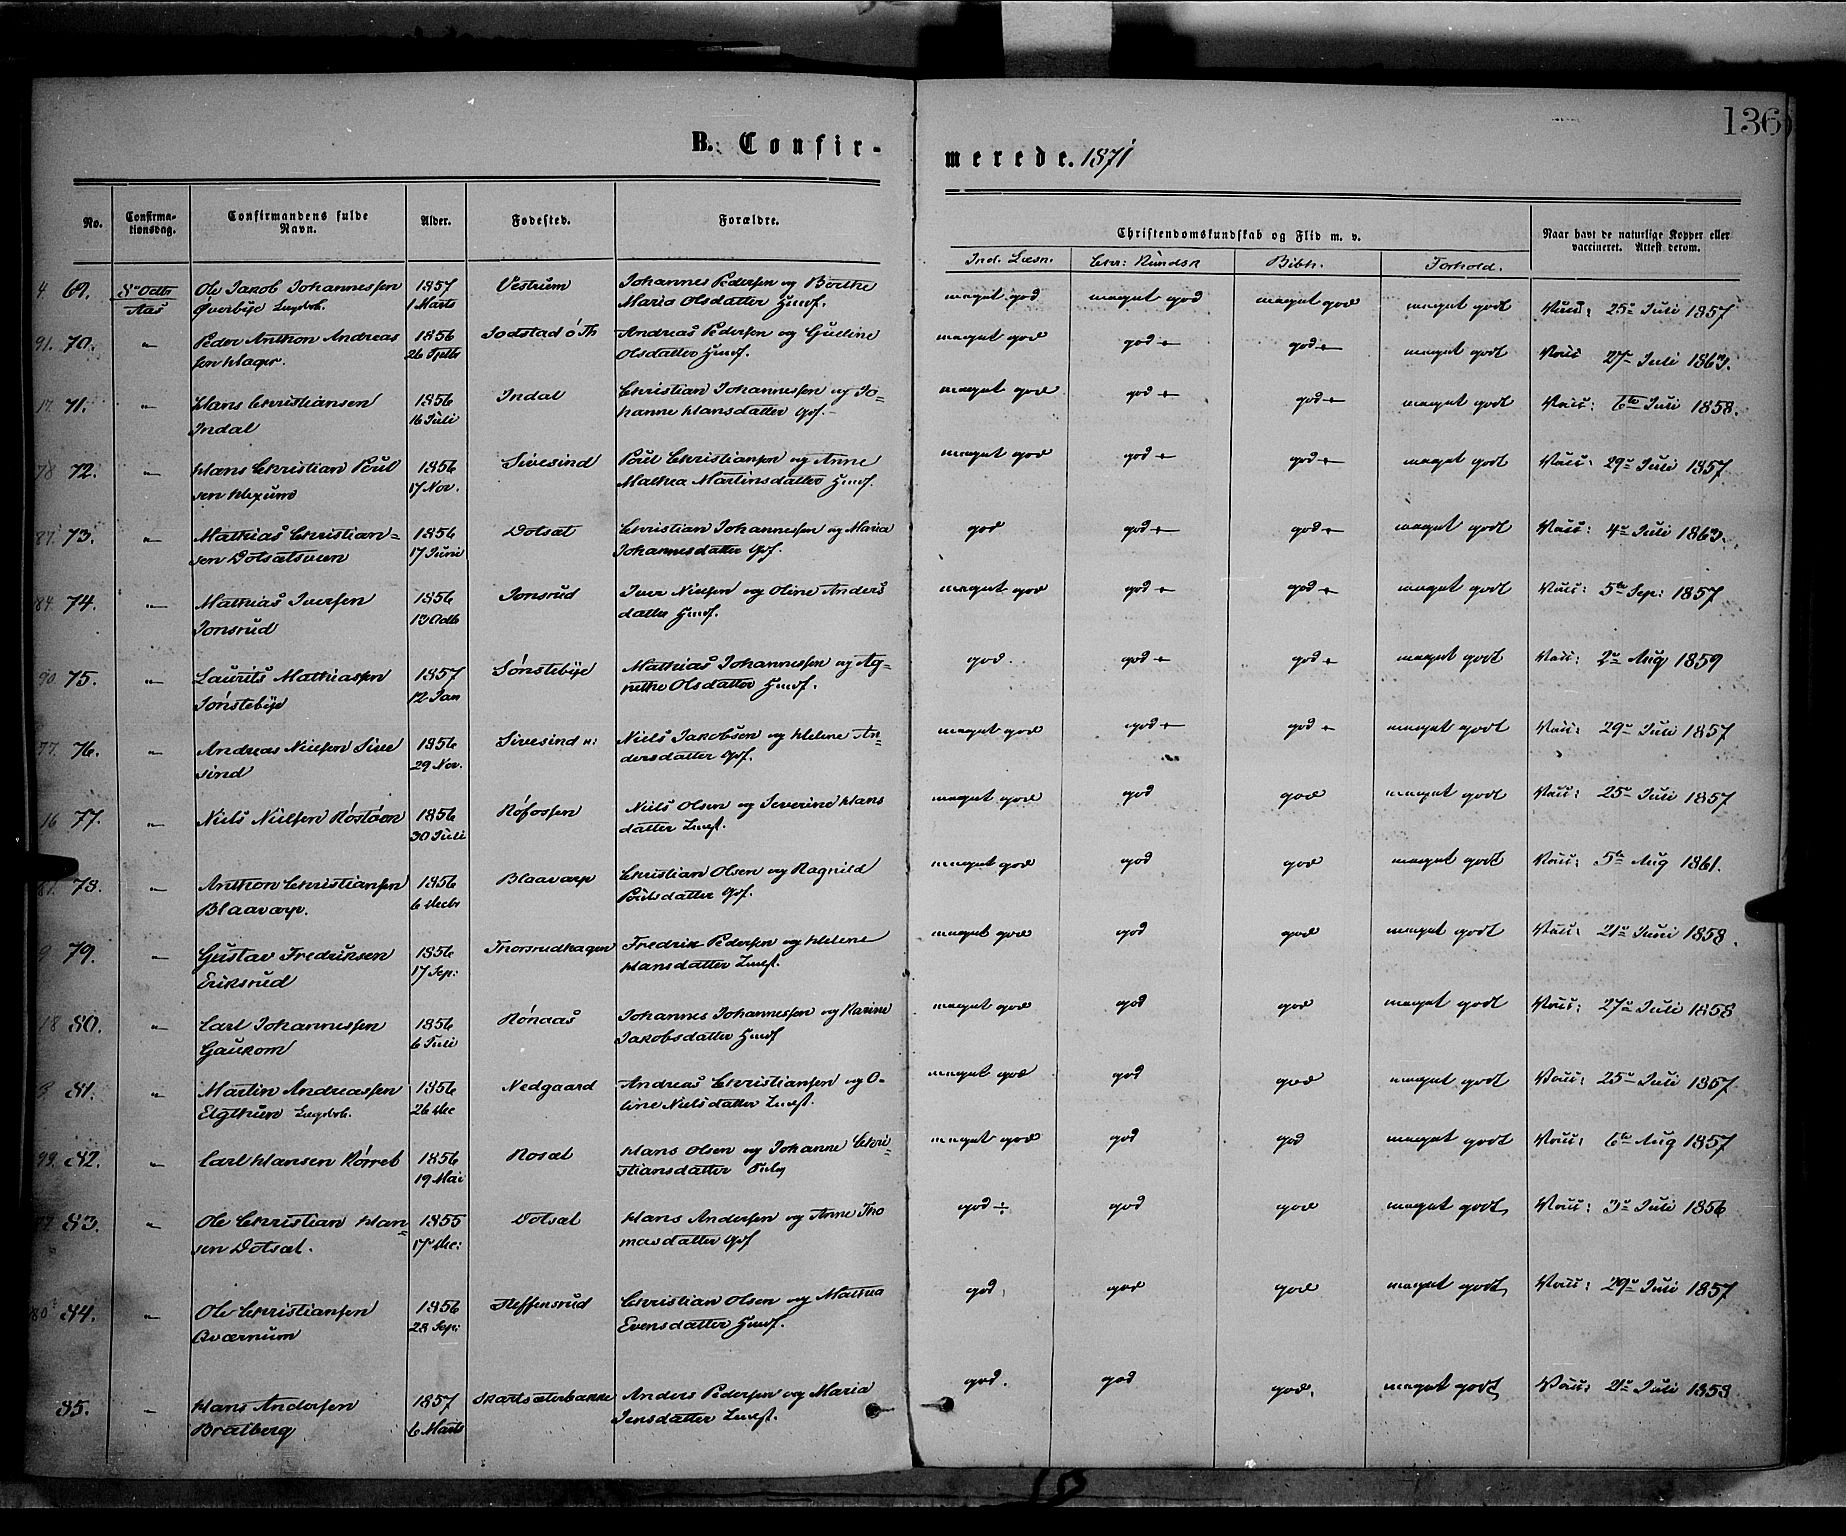 136
B. Confir-
merede. 1871
No.
Confirma-
tionsdag.
Confirmandens fulde
Navn.
Alder.
Fødested.
Forældre.
Christendomskundskab og Flid m. v.
Naar havt de naturlige Kopper eller
vaccineret. Attest derom.
Ind. Læsn. Chr: Kundsk Bibh. Forhold.
4 69. 8de Octbr Ole Jakob Johannessen 1857 Vestrum Johannes Pedersen og Börthe meget god meget god meget god meget godt Vacc: 25de Juli 1857
Aas Øverbÿe 1 Marts Maria Olsdatter Husf.
91. 70. " Peder Anthon Andreas 1856 Andreas Pedersen og meget god god + god + meget godt Vacc 27de Juli 1863.
sen Hager. 26 Septbr Olsdatter Husf.
17. 71. " Hans Christiansen 1856 Indal Christian Johannessen og Jo- meget god god + god + meget godt Vacc: 6te Juli 1858.
Indal 16 Juli hanne Hansdatter Gjf.
78 72. " Hans Christian Poul 1856 Sivesind Poul Christiansen og Anne meget god god + god + meget godt Vacc: 29de Juli 1857
sen Hexum 17 Nov. Mathea Martinsdatter Husf.
87. 73. " Mathias Christian- 1856 Dotsæt Christian Johannessen og Maria god god + god + meget godt Vacc: 4de Juli 1863.
sen Dotsætsveen 17 Juni Johannesdatter Gjf.
84. 74. " Mathias Iversen 1856 Jonsrud Iver Nielsen og Oline Anders meget god god + god + meget godt Vacc: 5te Sep: 1857
Jonsrud 13 Octb datter Husf.
90. 75. " Laurits Mathiassen 1857 Sønstebÿe Mathias Johannessen og Ag- god. god + god + meget godt Vacc: 2de Aug 1859
Sønstebÿe 12 Jan nethe Olsdatter Husf.
77. 76. " Andreas Nielsen Sive 1856 Sivesind n: Niels Jakobsen og Helene An- meget god god + god + meget godt Vacc: 29de Juli 1857
sind 29 Nov. dersdatter Gjf.
16 77. " Niels Nielsen Røstøen 1856 Røfossen Niels Olsen og Severine Hans meget god god god meget godt Vacc: 25de Juli 1857
30 Juli datter Inst.
81. 78. " Anthon Christiansen 1856 Blaavarp Christian Olsen og Ragnild meget god god god meget godt Vacc: 5te Aug 1861.
Blaavarp. 6 Decbr Poulsdatter Gjf.
9 79. " Gustav Fredriksen 1856 Thorsrudhagen Fredrik Pedersen og Helene meget god god god meget godt Vacc: 21de Juni 1858.
Eriksrud 17 Sep: Hansdatter Inst.
18 80. " Carl Johannessen 1856 Rønaas Johannes Johannessen og Karine meget god god god meget godt Vacc: 27de Juli 1858
Gaukom 6 Juli Jakobsdatter Husf
3 81. " Martin Andreassen 1856 Nedgaard Andreas Christiansen og O- meget god god god meget godt Vacc: 25de Juli 1857
Elgthun 26 Dec line Nielsdatter Inst.
99. 82. " Carl Hansen Rørret 1856 Rosæt Hans Olsen og Johanne Chri- meget god god god meget godt Vacc: 6te Aug 1857
19 Mai stiansdatter
83. " Ole Christian Han- 1855 Dotsæt Hans Andersen og Anne Tho god ÷ god god meget godt Vacc: 3de Juli 1856
sen Dotsæt. 17 Dec: masdatter Gjf
80 84. " Ole Christiansen 1856 Steffensrud Christian Olsen og Mathea god. god god meget godt Vacc: 29de Juli 1857
Bværnum 28 Sep: Evensdatter Husf.
85. " Hans Andersen 1857 Skartsæterbakke Anders Pedersen og Maria god. god god. meget godt Vacc: 2de Juli 1858
Bratberg 6 Marts Jensdatter Inst.